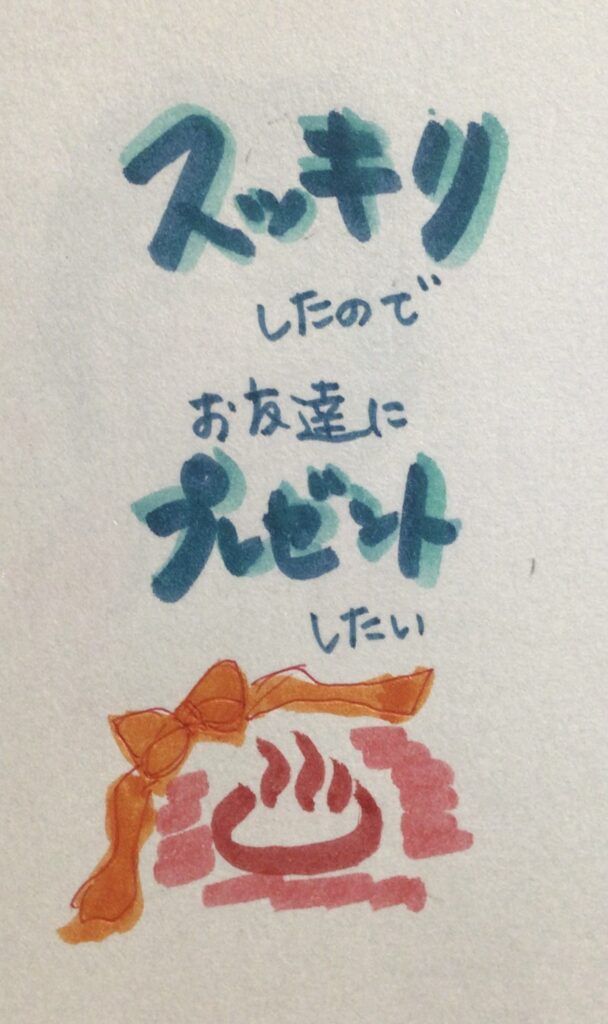 スッキリ
したので
お友達に
プレゼント
したい